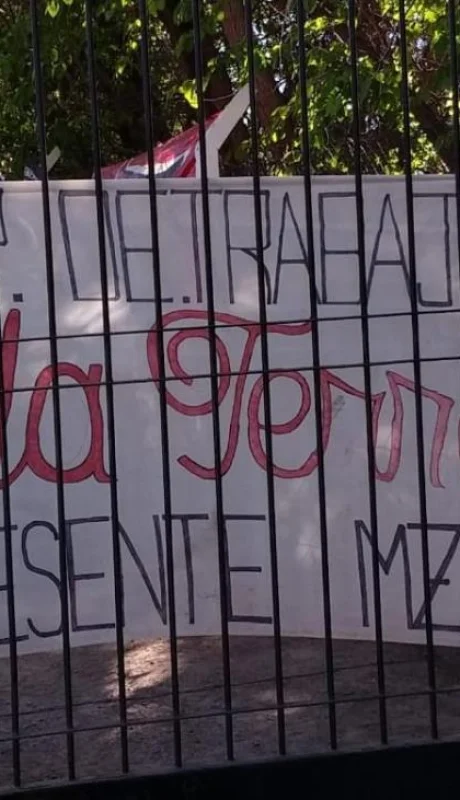 P. DE.TRABAJ
la Terr
ESENTE MZ